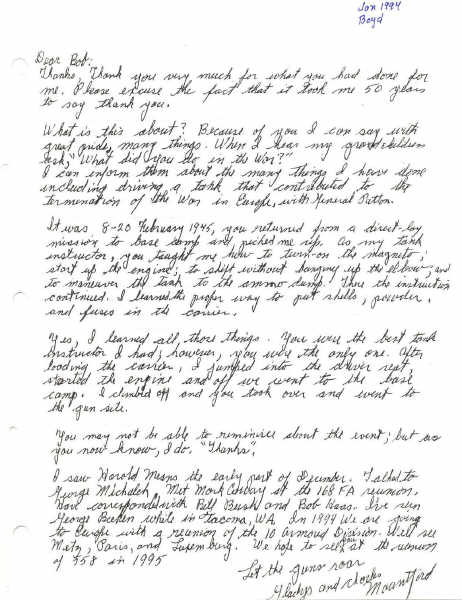 Jan 1994
Boyd
Dear Bob:
Thanks, Thank you very much for what you had done for
me. Please excuse the fact that it took me 50 years
to say thank you.
What is this about? Because of you I can say with
great pride, many things. When I hear my grandchildren
ask, "What did you do in the War?"
I can inform them about the many things I have done
including driving a tank that contributed to the
termination of the War in Europe, with General Patton.
It was 8-20 February 1945, you returned from a direct-lay
mission to base camp and picked me up. As my tank
instructor, you taught me how to turn-on the magneto,
start up the engine; to shift without banging up the elbow; and
to maneuver the tank to the ammo dump. There the instruction
continued. I learned the proper way to put shells, powder,
and fuses in the carrier.
Yes, I learned all those things. You were the best tank
instructor I had; however, you were the only one. After
loading the carrier, I jumped into the driver seat,
started the engine and off we went to the base
camp. I climbed off and you took over and went to
the gun site.
You may not be able to reminisce about the event; but as
you now know, I do. "Thanks".
I saw Harold Means the early part of December. Talked to
George Michalek, Met Mark at the 168 FA reunion.
Have corresponded with Bill Bush and Bob Haas. I've seen
George while in Tacoma, WA. In 1994 We are going
to Europe with a reunion of the 10 Armored Division. We'll see
Metz, Paris, and Luxemburg. We hope to see you at the reunion
of 758 in 1995
Let the guns roar
Gladys and Charles
Mountford